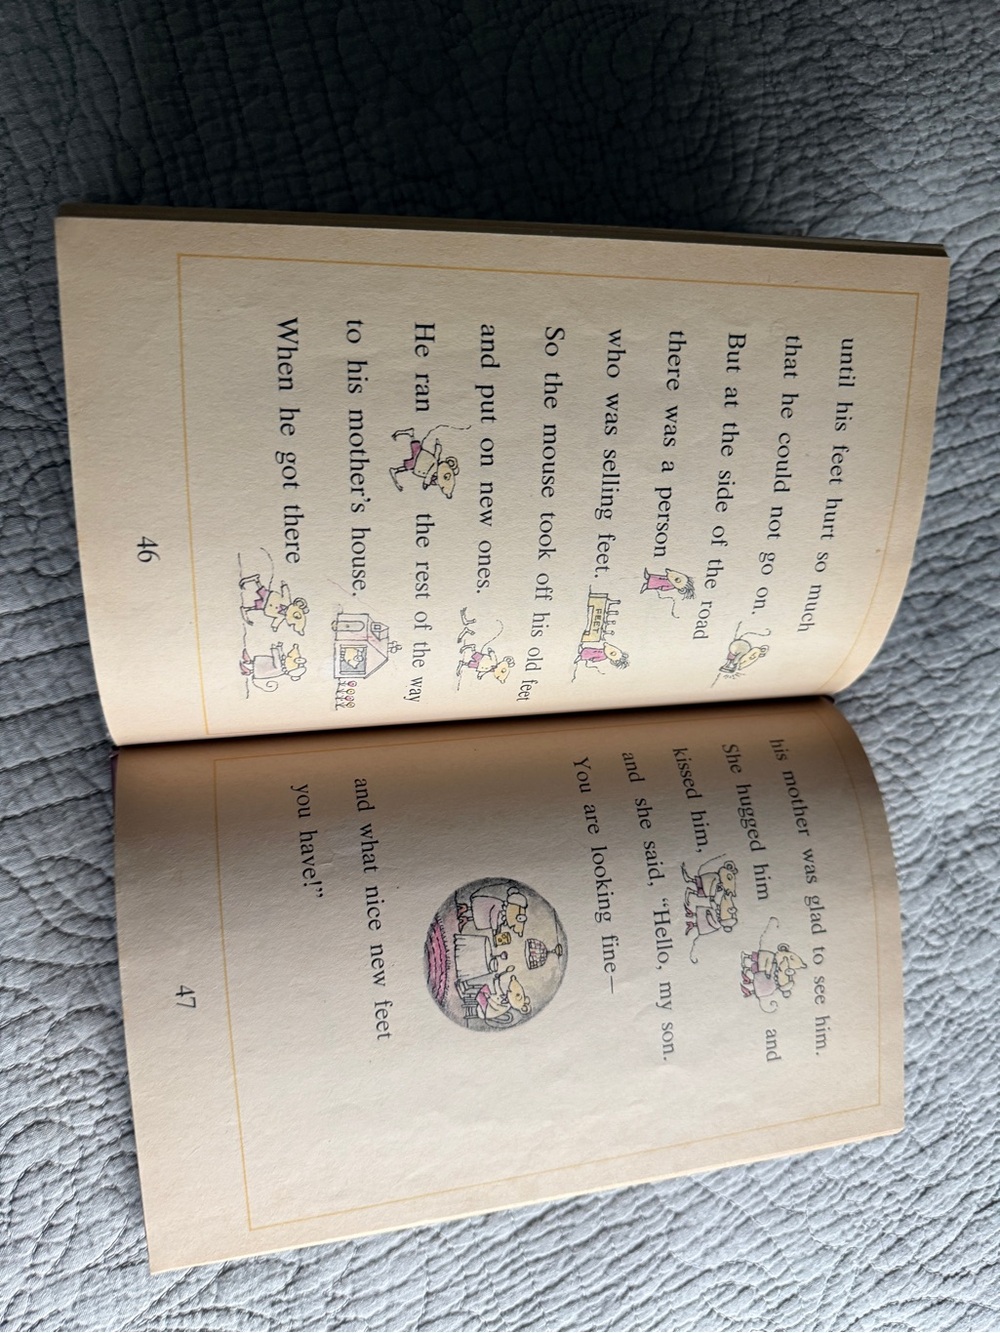 until his feet hurt so much
that he could not go on.
But at the side of the road
there was a person
who was selling feet.
FEET
So the mouse took off his old feet
and put on new ones.
He ran the rest of the way
to his mother's house.
When he got there
46
his mother was glad to see him.
She hugged him and
kissed him,
and she said, “Hello, my son.
You are looking fine—
and what nice new feet
you have!”
47